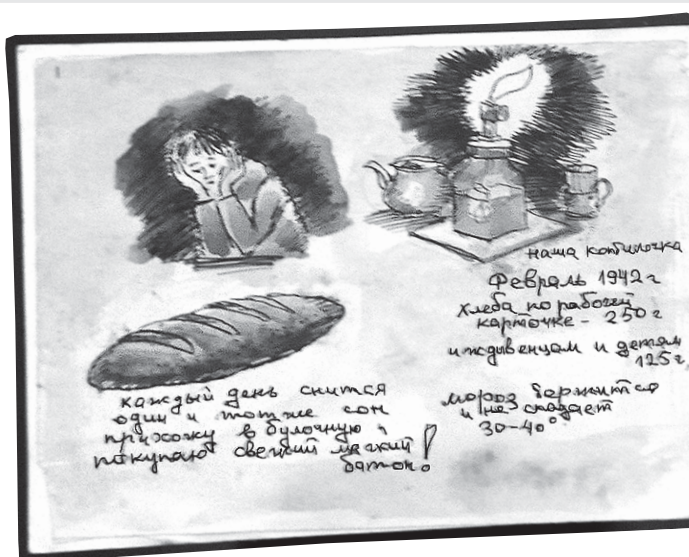 наша коптилочка
Февраль 1942 г
хлеба по рабочей
карточке - 250 г
иждивенцам и детям
125 г,
мороз держится
и не спадает
30-40°
каждый день снится
один и тот же сон
прихожу в булочную и
покупаю свежий мягкий
батон!